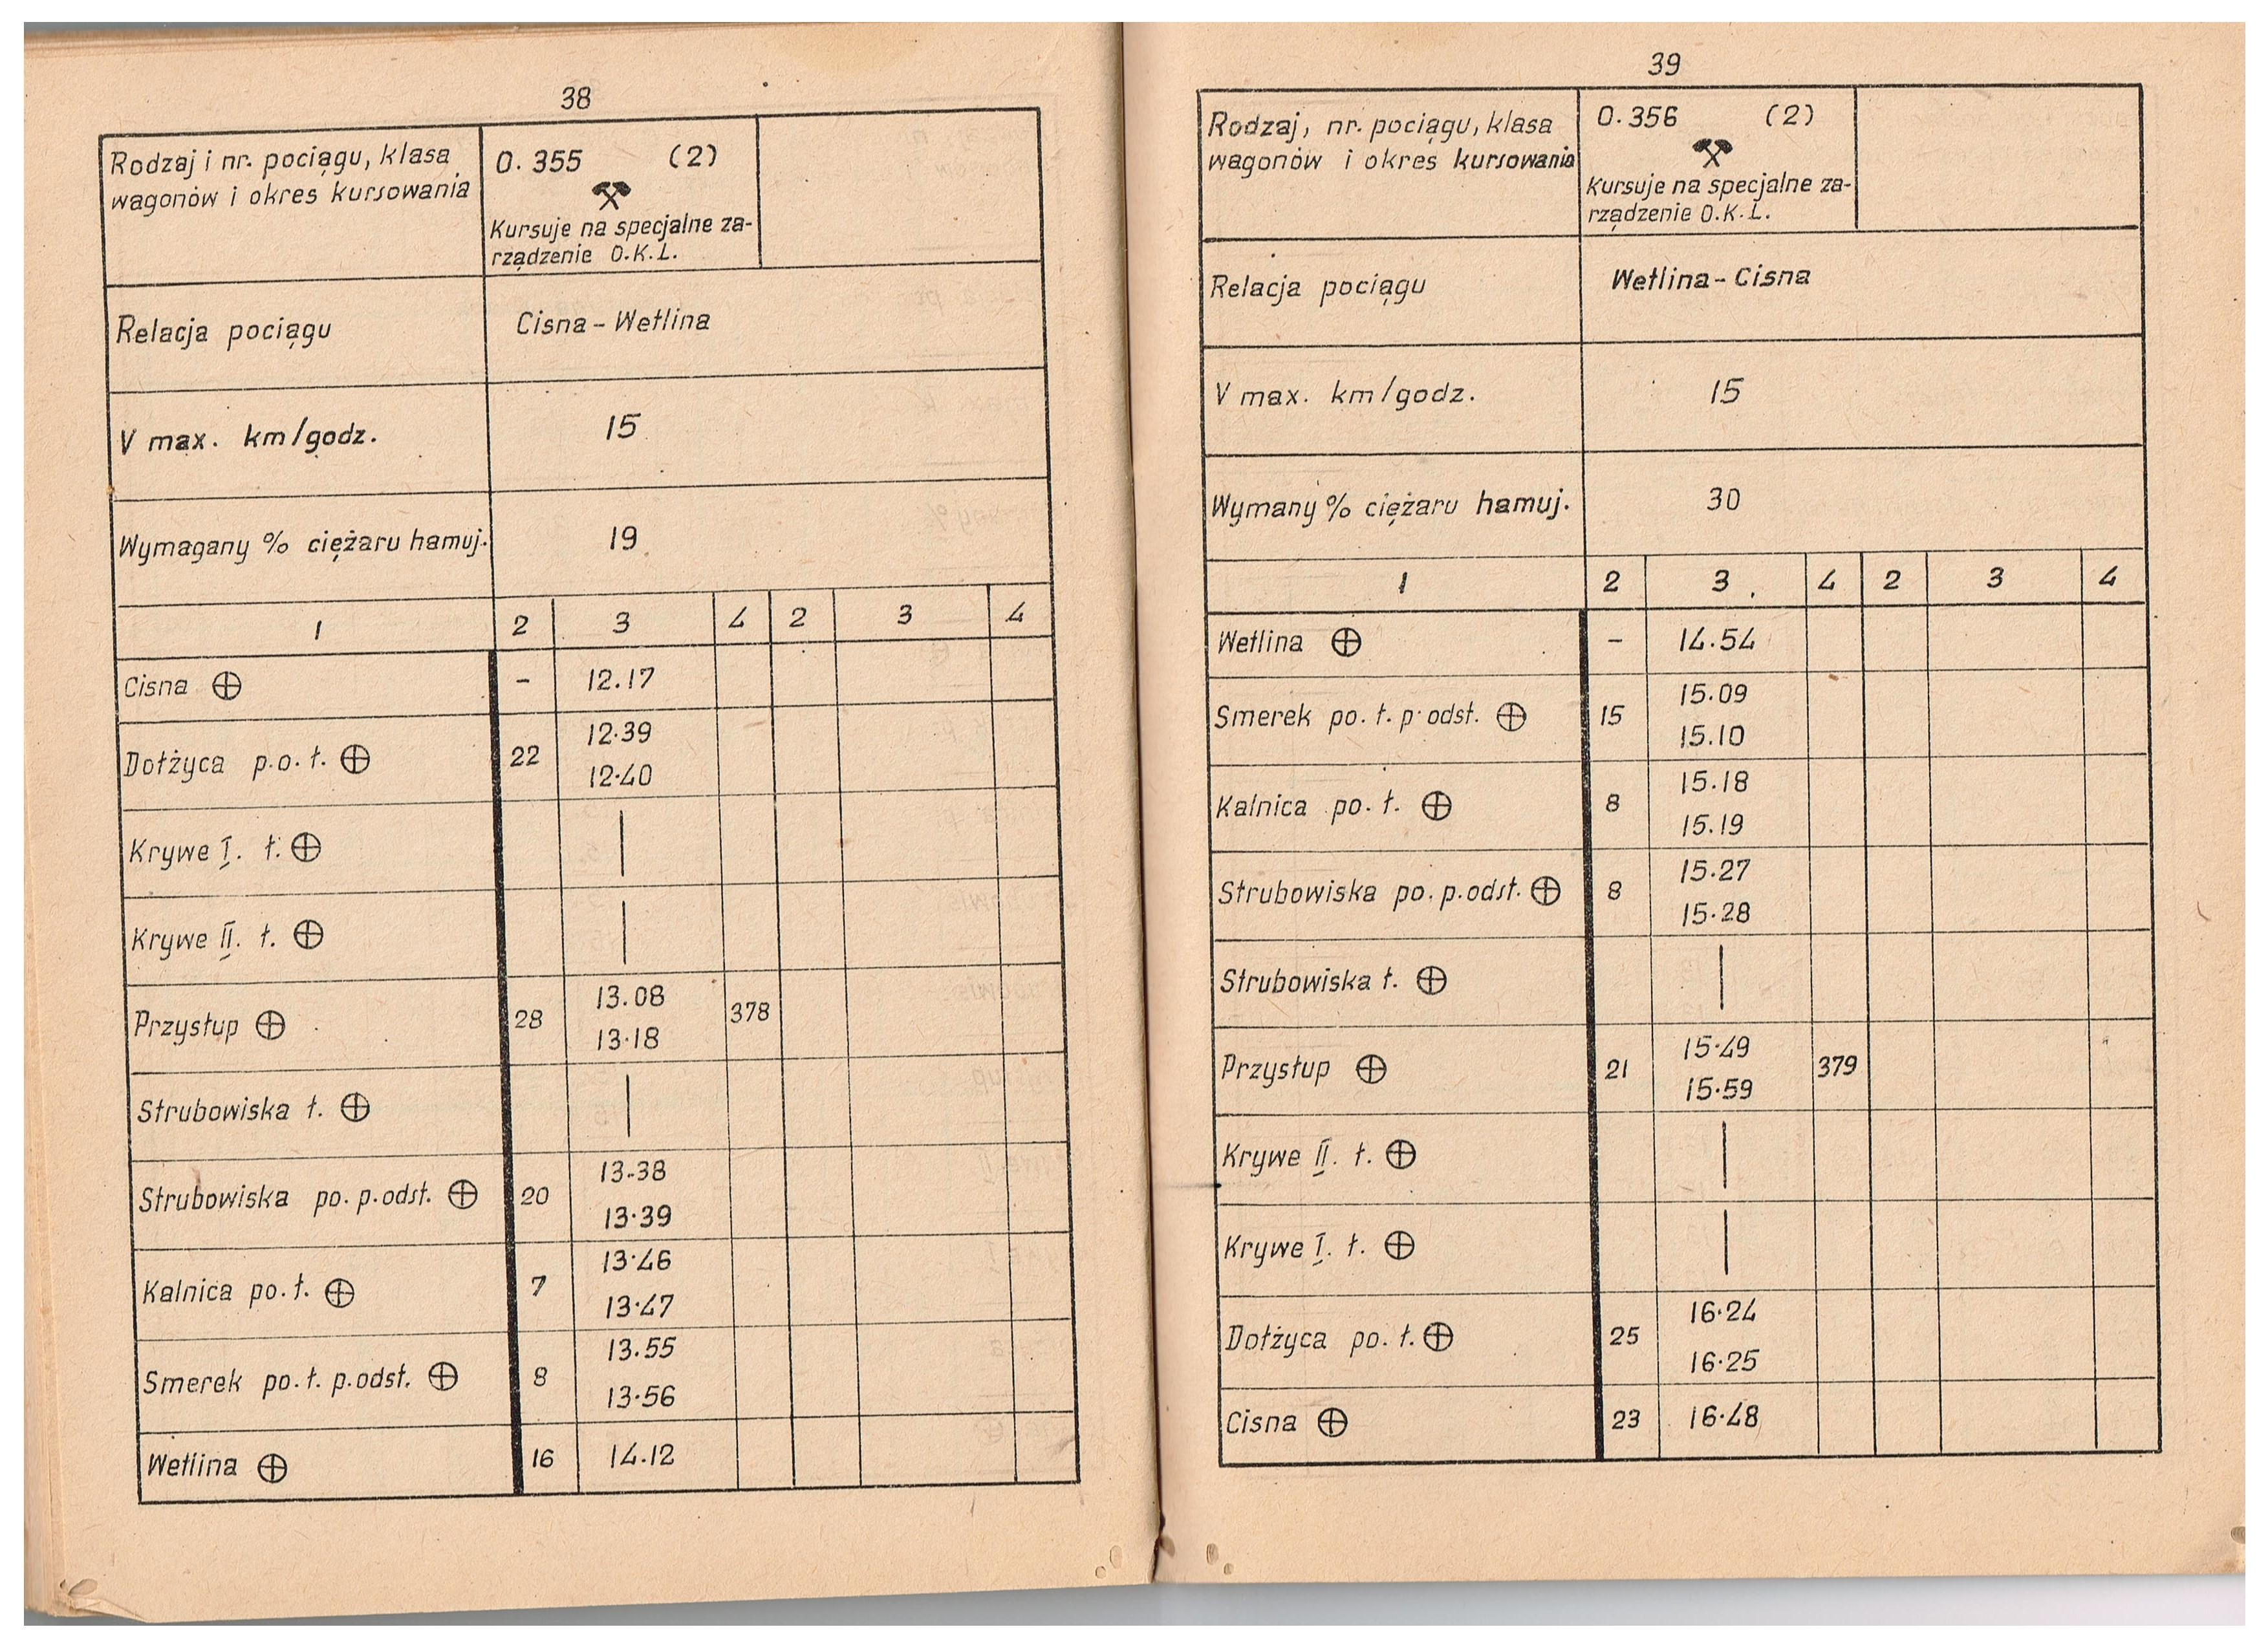 38
Rodzaj i nr. pociągu, klasa
wagonów i okres kursowania
O. 355 (2)
Kursuje na specjalne za-
rządzenie O.K.L.
Relacja pociągu Cisna - Wetlina
V max. km/godz. 15
Wymagany % ciężaru hamuj. 19
1 2 3 4 2 3 4
Cisna ⊕ - 12.17
Dołżyca p.o. ł. ⊕ 22 12.39
12.40
Krywe I. ł. ⊕ |
Krywe II. ł. ⊕ |
Przysłup ⊕ 28 13.08 378
13.18
Strubowiska ł. ⊕ |
Strubowiska po. p.odst. ⊕ 20 13.38
13.39
Kalnica po. ł. ⊕ 7 13.46
13.47
Smerek po. ł. p.odst. ⊕ 8 13.55
13.56
Wetlina ⊕ 16 14.12
39
Rodzaj, nr. pociągu, klasa
wagonów i okres kursowania
O. 356 (2)
Kursuje na specjalne za-
rządzenie O.K.L.
Relacja pociągu Wetlina - Cisna
V max. km/godz. 15
Wymany % ciężaru hamuj. 30
1 2 3 4 2 3 4
Wetlina ⊕ - 14.54
Smerek po. ł. p. odst. ⊕ 15 15.09
15.10
Kalnica po. ł. ⊕ 8 15.18
15.19
Strubowiska po. p.odst. ⊕ 8 15.27
15.28
Strubowiska ł. ⊕ |
Przysłup ⊕ 21 15.49 379
15.59
Krywe II. ł. ⊕ |
Krywe I. ł. ⊕ |
Dołżyca po. ł. ⊕ 25 16.24
16.25
Cisna ⊕ 23 16.48